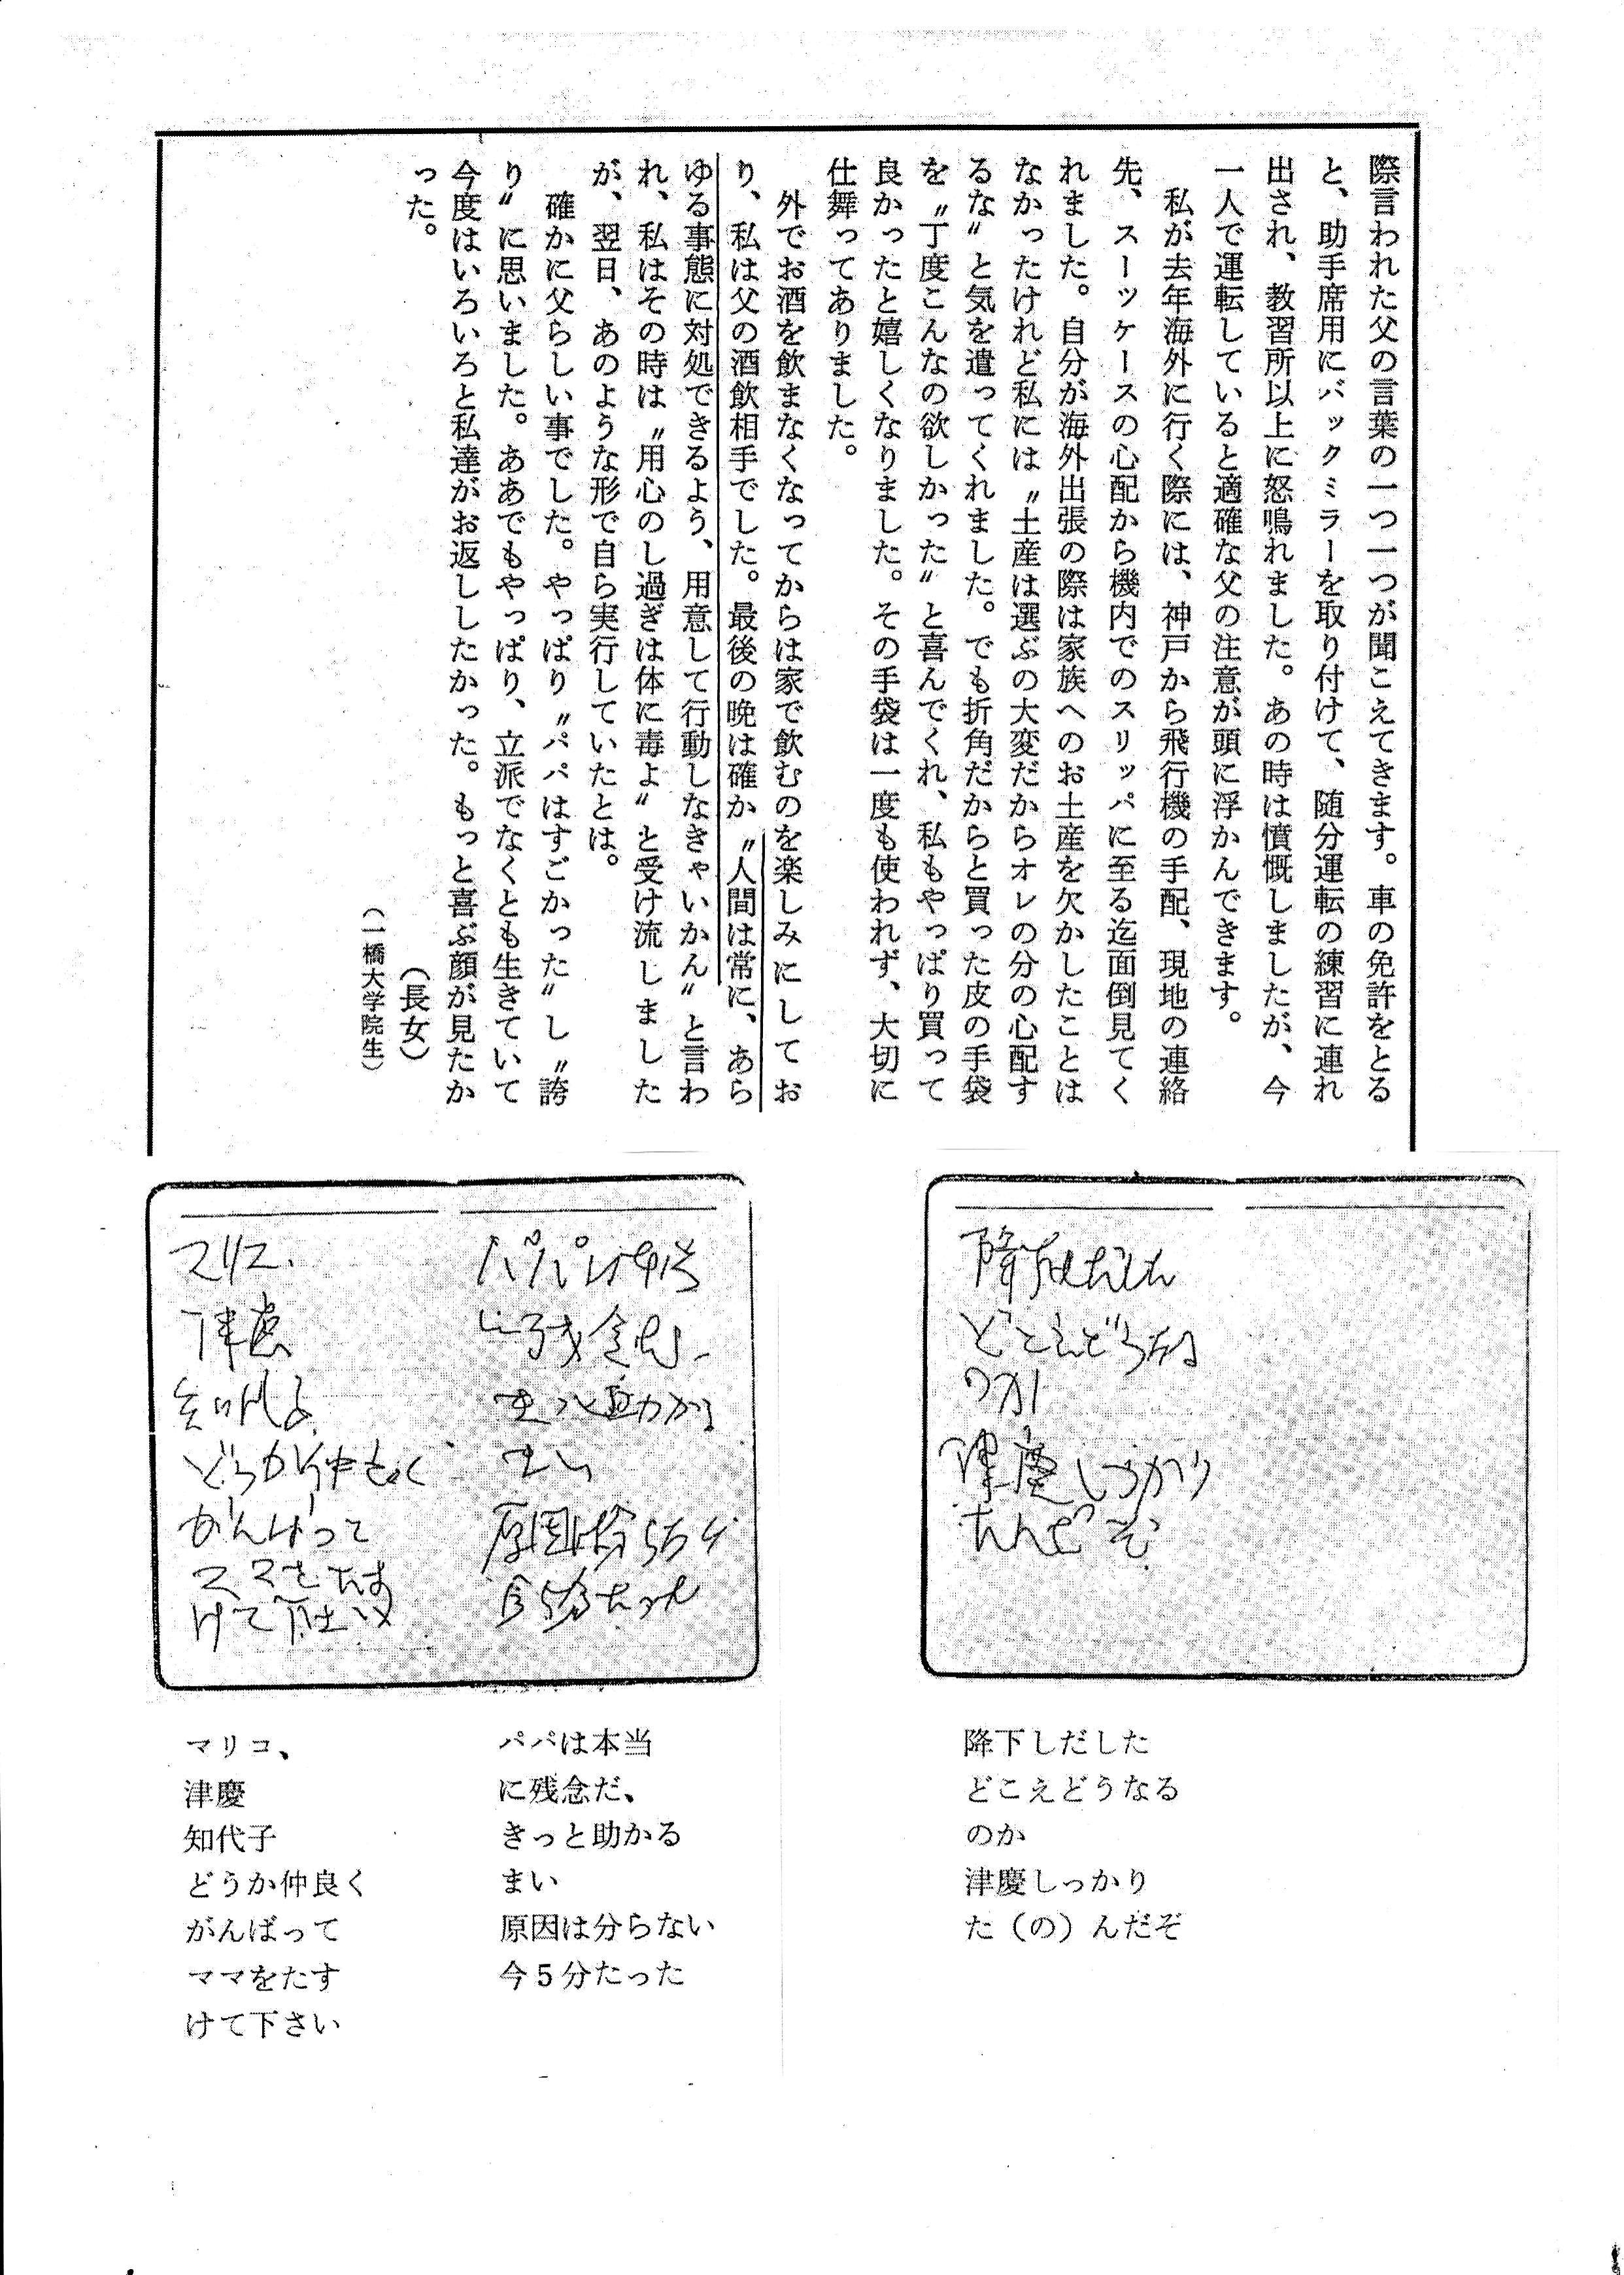 際言われた父の言葉の一つ一つが聞こえてきます。車の免許をとる
と、助手席用にバックミラーを取り付けて、随分運転の練習に連れ
出され、教習所以上に怒鳴れました。あの時は憤慨しましたが、今
一人で運転していると適確な父の注意が頭に浮かんできます。
私が去年海外に行く際には、神戸から飛行機の手配、現地の連絡
先、スーツケースの心配から機内でのスリッパに至る迄面倒見てく
れました。自分が海外出張の際は家族へのお土産を欠かしたことは
なかったけれど私には〝土産は選ぶの大変だからオレの分の心配す
るな〟と気を遣ってくれました。でも折角だからと買った皮の手袋
を〝丁度こんなの欲しかった〟と喜んでくれ、私もやっぱり買って
良かったと嬉しくなりました。その手袋は一度も使われず、大切に
仕舞ってありました。
外でお酒を飲まなくなってからは家で飲むのを楽しみにしてお
り、私は父の酒飲相手でした。最後の晩は確か〝人間は常に、あら
ゆる事態に対処できるよう、用意して行動しなきゃいかん〟と言わ
れ、私はその時は〝用心のし過ぎは体に毒よ〟と受け流しました
が、翌日、あのような形で自ら実行していたとは。
確かに父らしい事でした。やっぱり〝パパはすごかった〟し〝誇
り〟に思いました。ああでもやっぱり、立派でなくとも生きていて
今度はいろいろと私達がお返ししたかった。もっと喜ぶ顔が見たか
った。
（長女）
（一橋大学院生）
マリコ.
津慶
知代子
どうか仲良く
がんばって
ママをたす
けて下さい
パパは本当
に残念だ、
きっと助かる
まい
原因は分らない
今5分たった
降下しだした
どこえどうなる
のか
津慶しっかり
たんだぞ
マリコ、
津慶
知代子
どうか仲良く
がんばって
ママをたす
けて下さい
パパは本当
に残念だ、
きっと助かる
まい
原因は分らない
今５分たった
降下しだした
どこえどうなる
のか
津慶しっかり
た（の）んだぞ